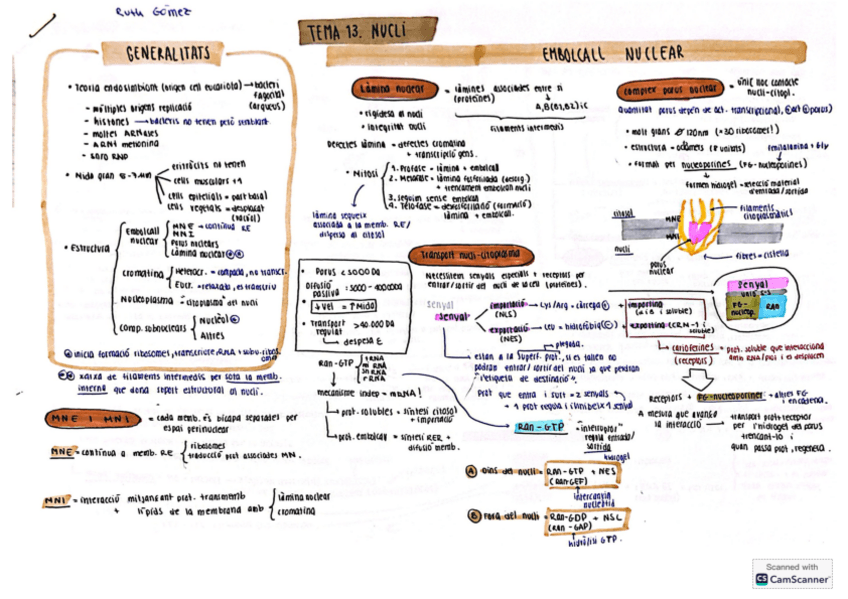 Ruth Gómez
TEMA 13. NUCLI
GENERALITATS
• Teoria endosimbiont (origen cell eucariota) → bacteri
(arqueus)
- múltiples origens replicació
- histones → bacteris no tenen però semblant
- moltes ARNases
- ARNt metionina
• Mida gran 5-7 µm
eritròcits no tenen
cells musculars +1
cells epitelials = part basal
cells vegetals = desplaçat
• Estructura
Embolcall nuclear
MNE → contínua RE
MNI
Porus nuclears
Làmina nuclear
cromatina
Heterocr. = compacta, no transcr.
Eucr. = relaxada, es transcriu
Nucleoplasma = "citoplasma" del nucli
Comp. subnuclears
Nuclèol
Altres
inicia formació ribosomes, transcriute rRNA + subu. ribos.
xarxa de filaments intermedis per sota la memb.
interna que dona suport estructural al nucli.
MNE I MNI = cada memb. és bicapa separades per
espai perinuclear
MNE = contínua a memb. RE
ribosomes
traducció prot associades MN.
MNI = interacció mitjançant prot. transmemb
+ lípids de la membrana amb
làmina nuclear
cromatina
EMBOLCALL NUCLEAR
Làmina nuclear = làmines associades entre si
(proteïnes)
A, B(B1, B2) i C
filaments intermedis
• rigidesa al nucli
• integritat nucli
Defectes làmina = defectes cromatina
+ transcripció gens.
• Mitosi
1. Profase = làmina + embolcall
2. Metafase = làmina fosforilada (desorg.)
+ trencament embolcall nucli
3. seguim sense embolcall
4. Telofase = desfosforilació (formació)
làmina + embolcall.
làmina segueix
associada a la memb. RE/
dispersa al citosol
complex porus nuclear = únic lloc contacte
nucli-citopl.
Quantitat porus depèn de act. transcripcional,
• molt grans Ø 120nm (×30 ribosomes!)
• estructura = octàmers (8 unitats)
fenilalanina + Gly
• format per nucleoporines (FG-nucleoporines)
formen hidrogel = selecció material
d'entrada/sortida
citosol
MNE
MNI
nucli
filaments
citoplasmàtics
porus
nuclear
fibres = cistella
Transport nucli-citoplasma
Necessitem senyals especials + receptors per
entrar/sortir del nucli de la cèl (proteïnes).
• Porus < 5000 Da
Difusió
passiva = 5000 - 40000Da
↓ vel = ↑ Mida
• Transport > 40.000 Da
regulat
↳ despesa E
senyal
senyal
importació → Lys/Arg = càrrega ⊕
(NLS)
exportació → Leu = hidrofòbia
(NES)
importina
(α i B i soluble)
exportina (CRM-1 i
soluble)
senyal
FG-
nucleop.
RAN
estan a la superf. prot., si es tallen no
podran entrar/sortir del nucli ja que perdran
"l'etiqueta de destinació".
Prot que entra i surt = 2 senyals
carioferines = prot. soluble que interacciona
(receptors) amb RNA/pos i es desplacen
Receptors + FG-nucleoporines
A mesura que avança
la interacció → transport prot+receptor
per l'hidrogel del porus
trencant-lo i
quan passa prot, regenera.
RAN-GTP
tRNA
mi RNA
sn RNA
rRNA
mecanisme indep = mRNA!
prot. solubles = síntesi citosol
+ importació
prot. embolcall = síntesi RER +
difusió memb.
RAN-GTP = "interruptor"
regula entrada/
sortida
hidrogel
A dins del nucli = RAN-GTP + NES
(RAN-GEF)
intercanvia
nucleòtid
B fora del nucli = RAN-GDP + NSL
(RAN-GAP)
hidròlisi GTP.
Scanned with
CS CamScanner